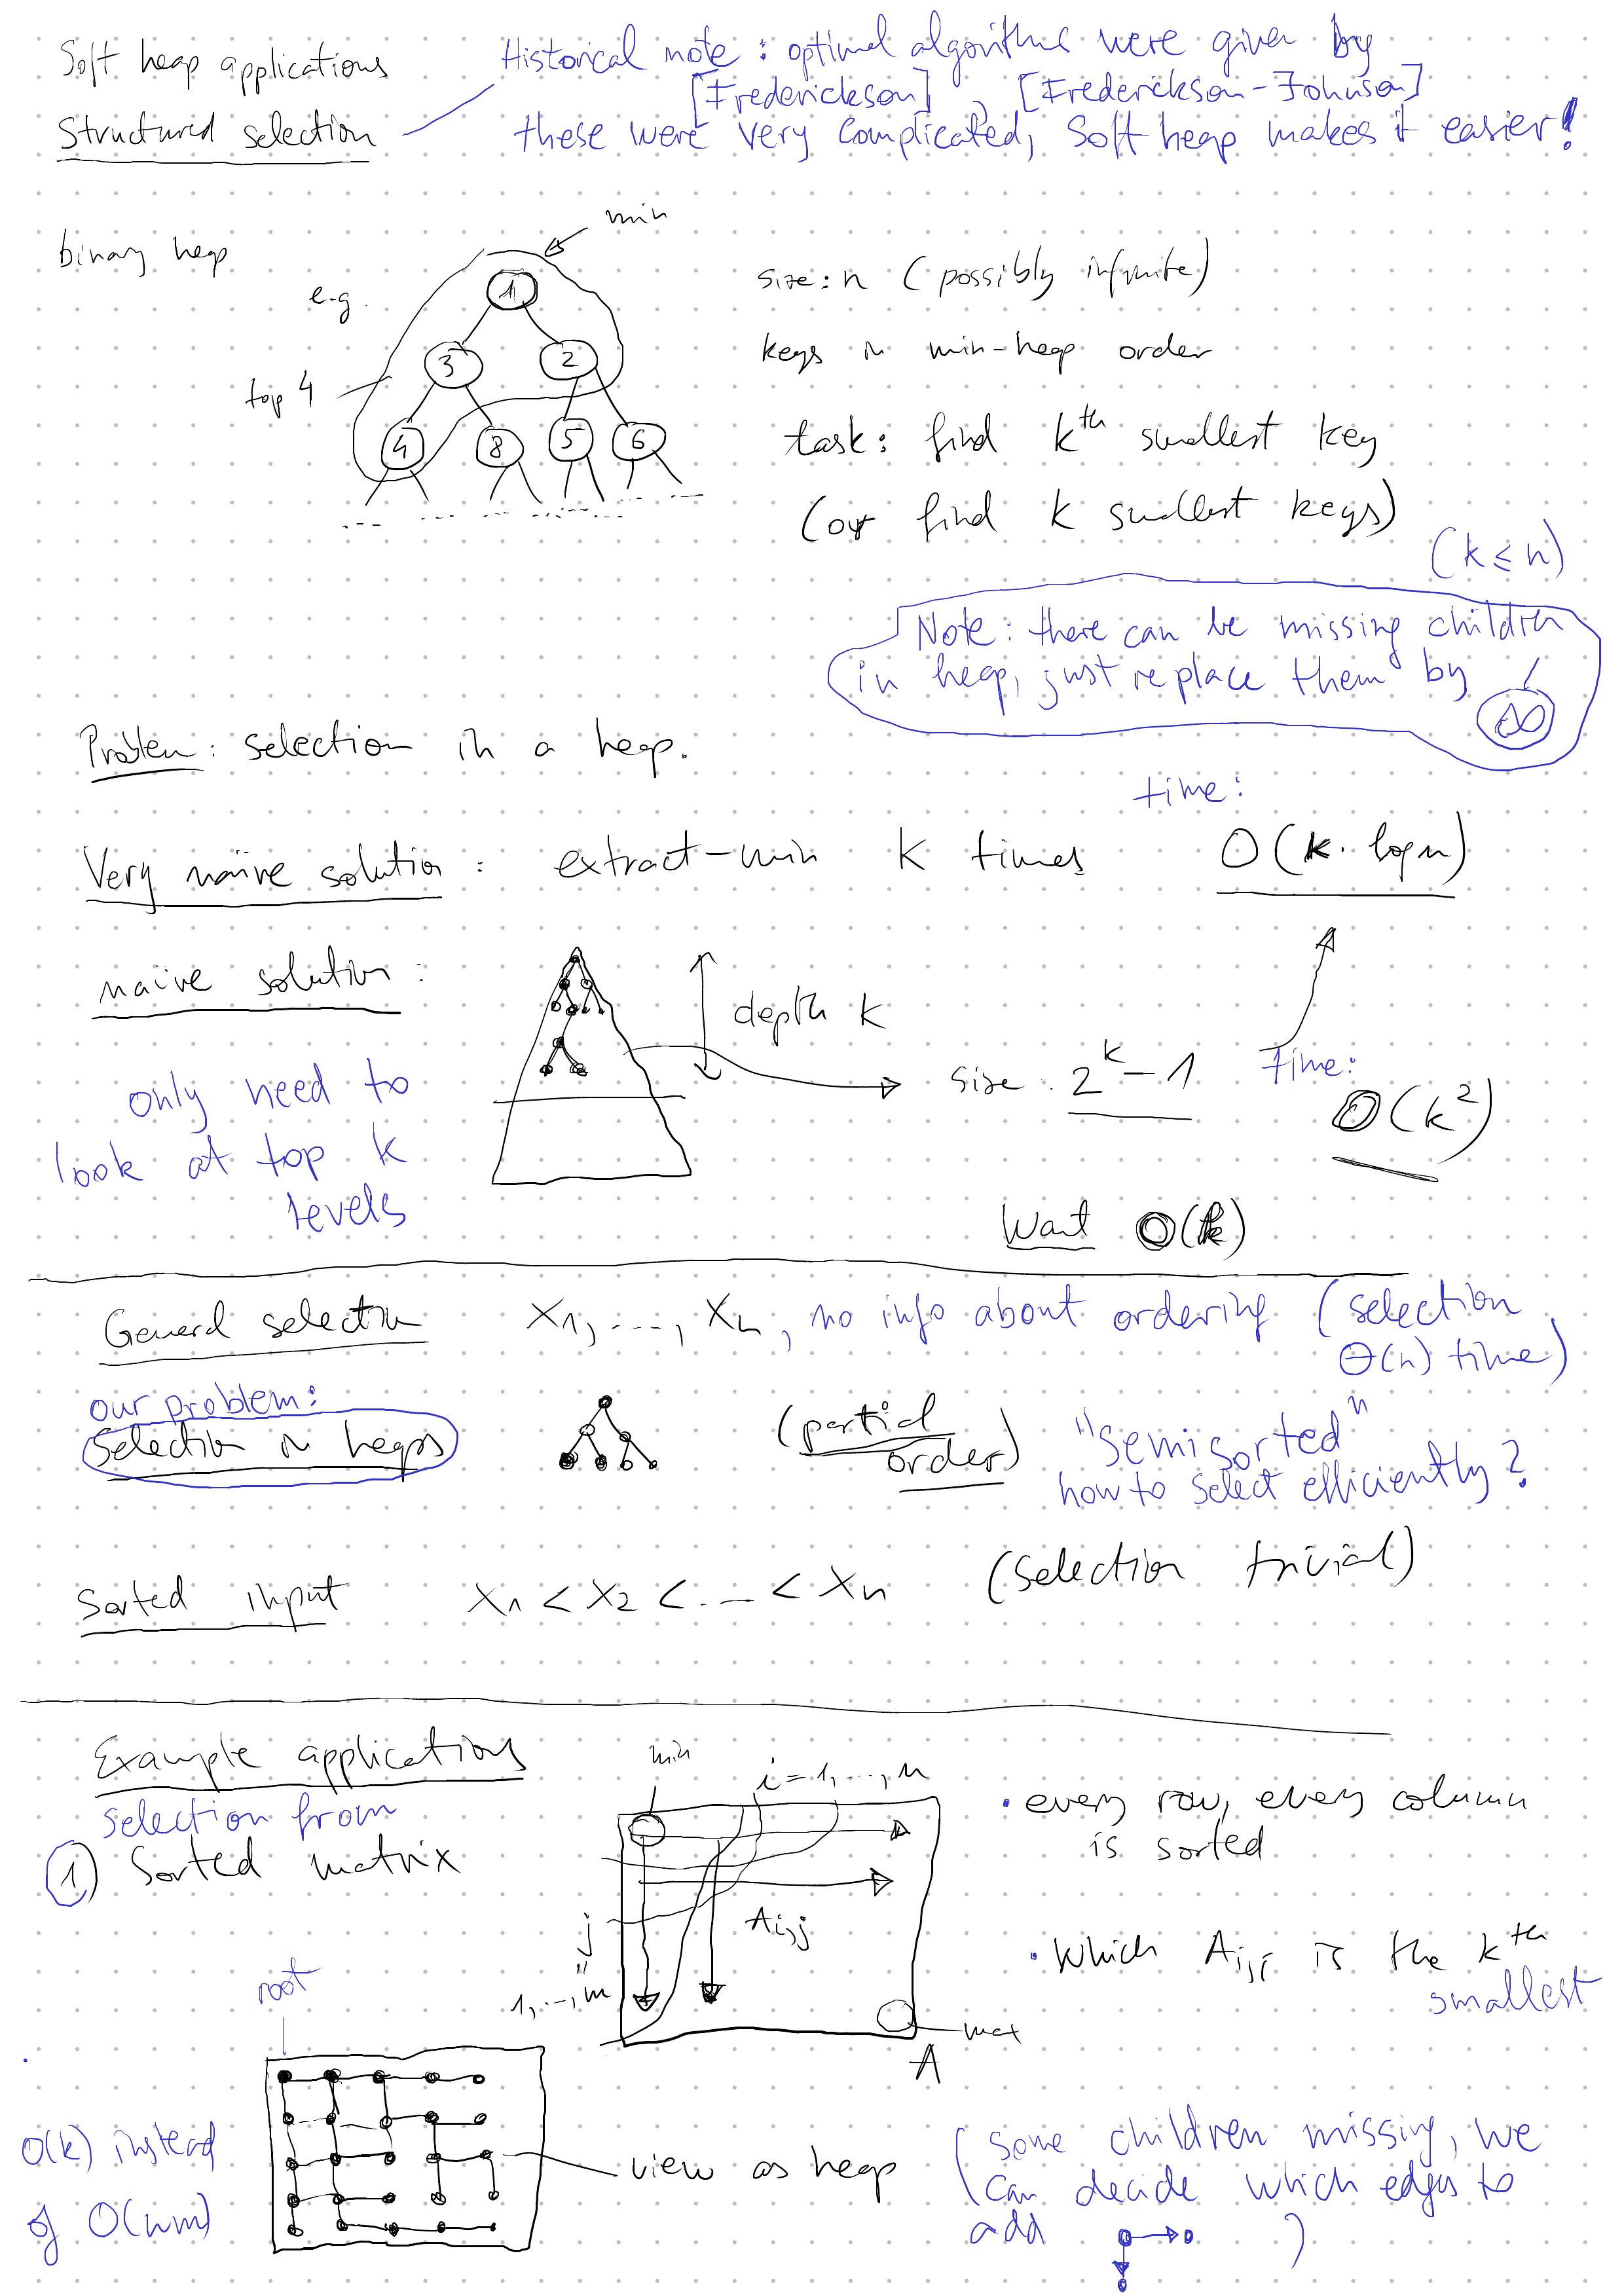 Soft heap applications
Structured selection
Historical note: optimal algorithms were given by
[Frederickson], [Frederickson-Johnson]
these were very complicated, Soft heap makes it easier!
binary heap
e.g.
min
1
3 2
4 8 5 6
top 4
size: n (possibly infinite)
keys in min-heap order
task: find kth smallest key
(or find k smallest keys)
(k ≤ n)
Note: there can be missing children
in heap, just replace them by
∞
Problem: selection in a heap.
time:
Very naïve solution: extract-min k times O(k·log n)
naïve solution:
depth k
size: 2^k - 1
time:
O(k²)
only need to
look at top k
levels
Want O(k)
General selection x1, ..., xn, no info about ordering (selection
Θ(n) time)
our problem:
Selection in heaps
(partial
order)
"semisorted"
how to select efficiently?
Sorted input x1 < x2 < ... < xn (selection trivial)
Example applications
selection from
1) Sorted matrix
min
i = 1, ..., n
j
=
1, ..., m
Ai,j
max
A
• every row, every column
is sorted
• Which Ai,j is the kth
smallest
root
O(k) instead
of O(nm)
view as heap
(some children missing, we
can decide which edges to
add )